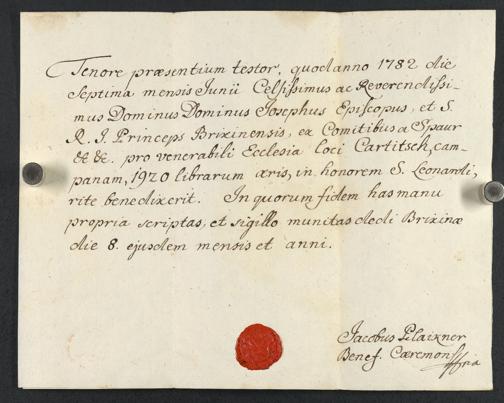 Tenore præsentium testor, quod anno 1782 die
Septima mensis Junii Celsissimus ac Reverendissi-
mus Dominus Dominus Josephus Episcopus, et S.
R. I. Princeps Brixinensis, ex Comitibus a Spaur
&c &c. pro venerabili Ecclesia loci Cartitsch, cam-
panam, 1920 librarum æris, in honorem S. Leonardi,
rite benedixerit. In quorum fidem has manu
propria scriptas, et sigillo munitas dedi Brixinæ
die 8. ejusdem mensis et anni.
Jacobus
Benef. Cæremon